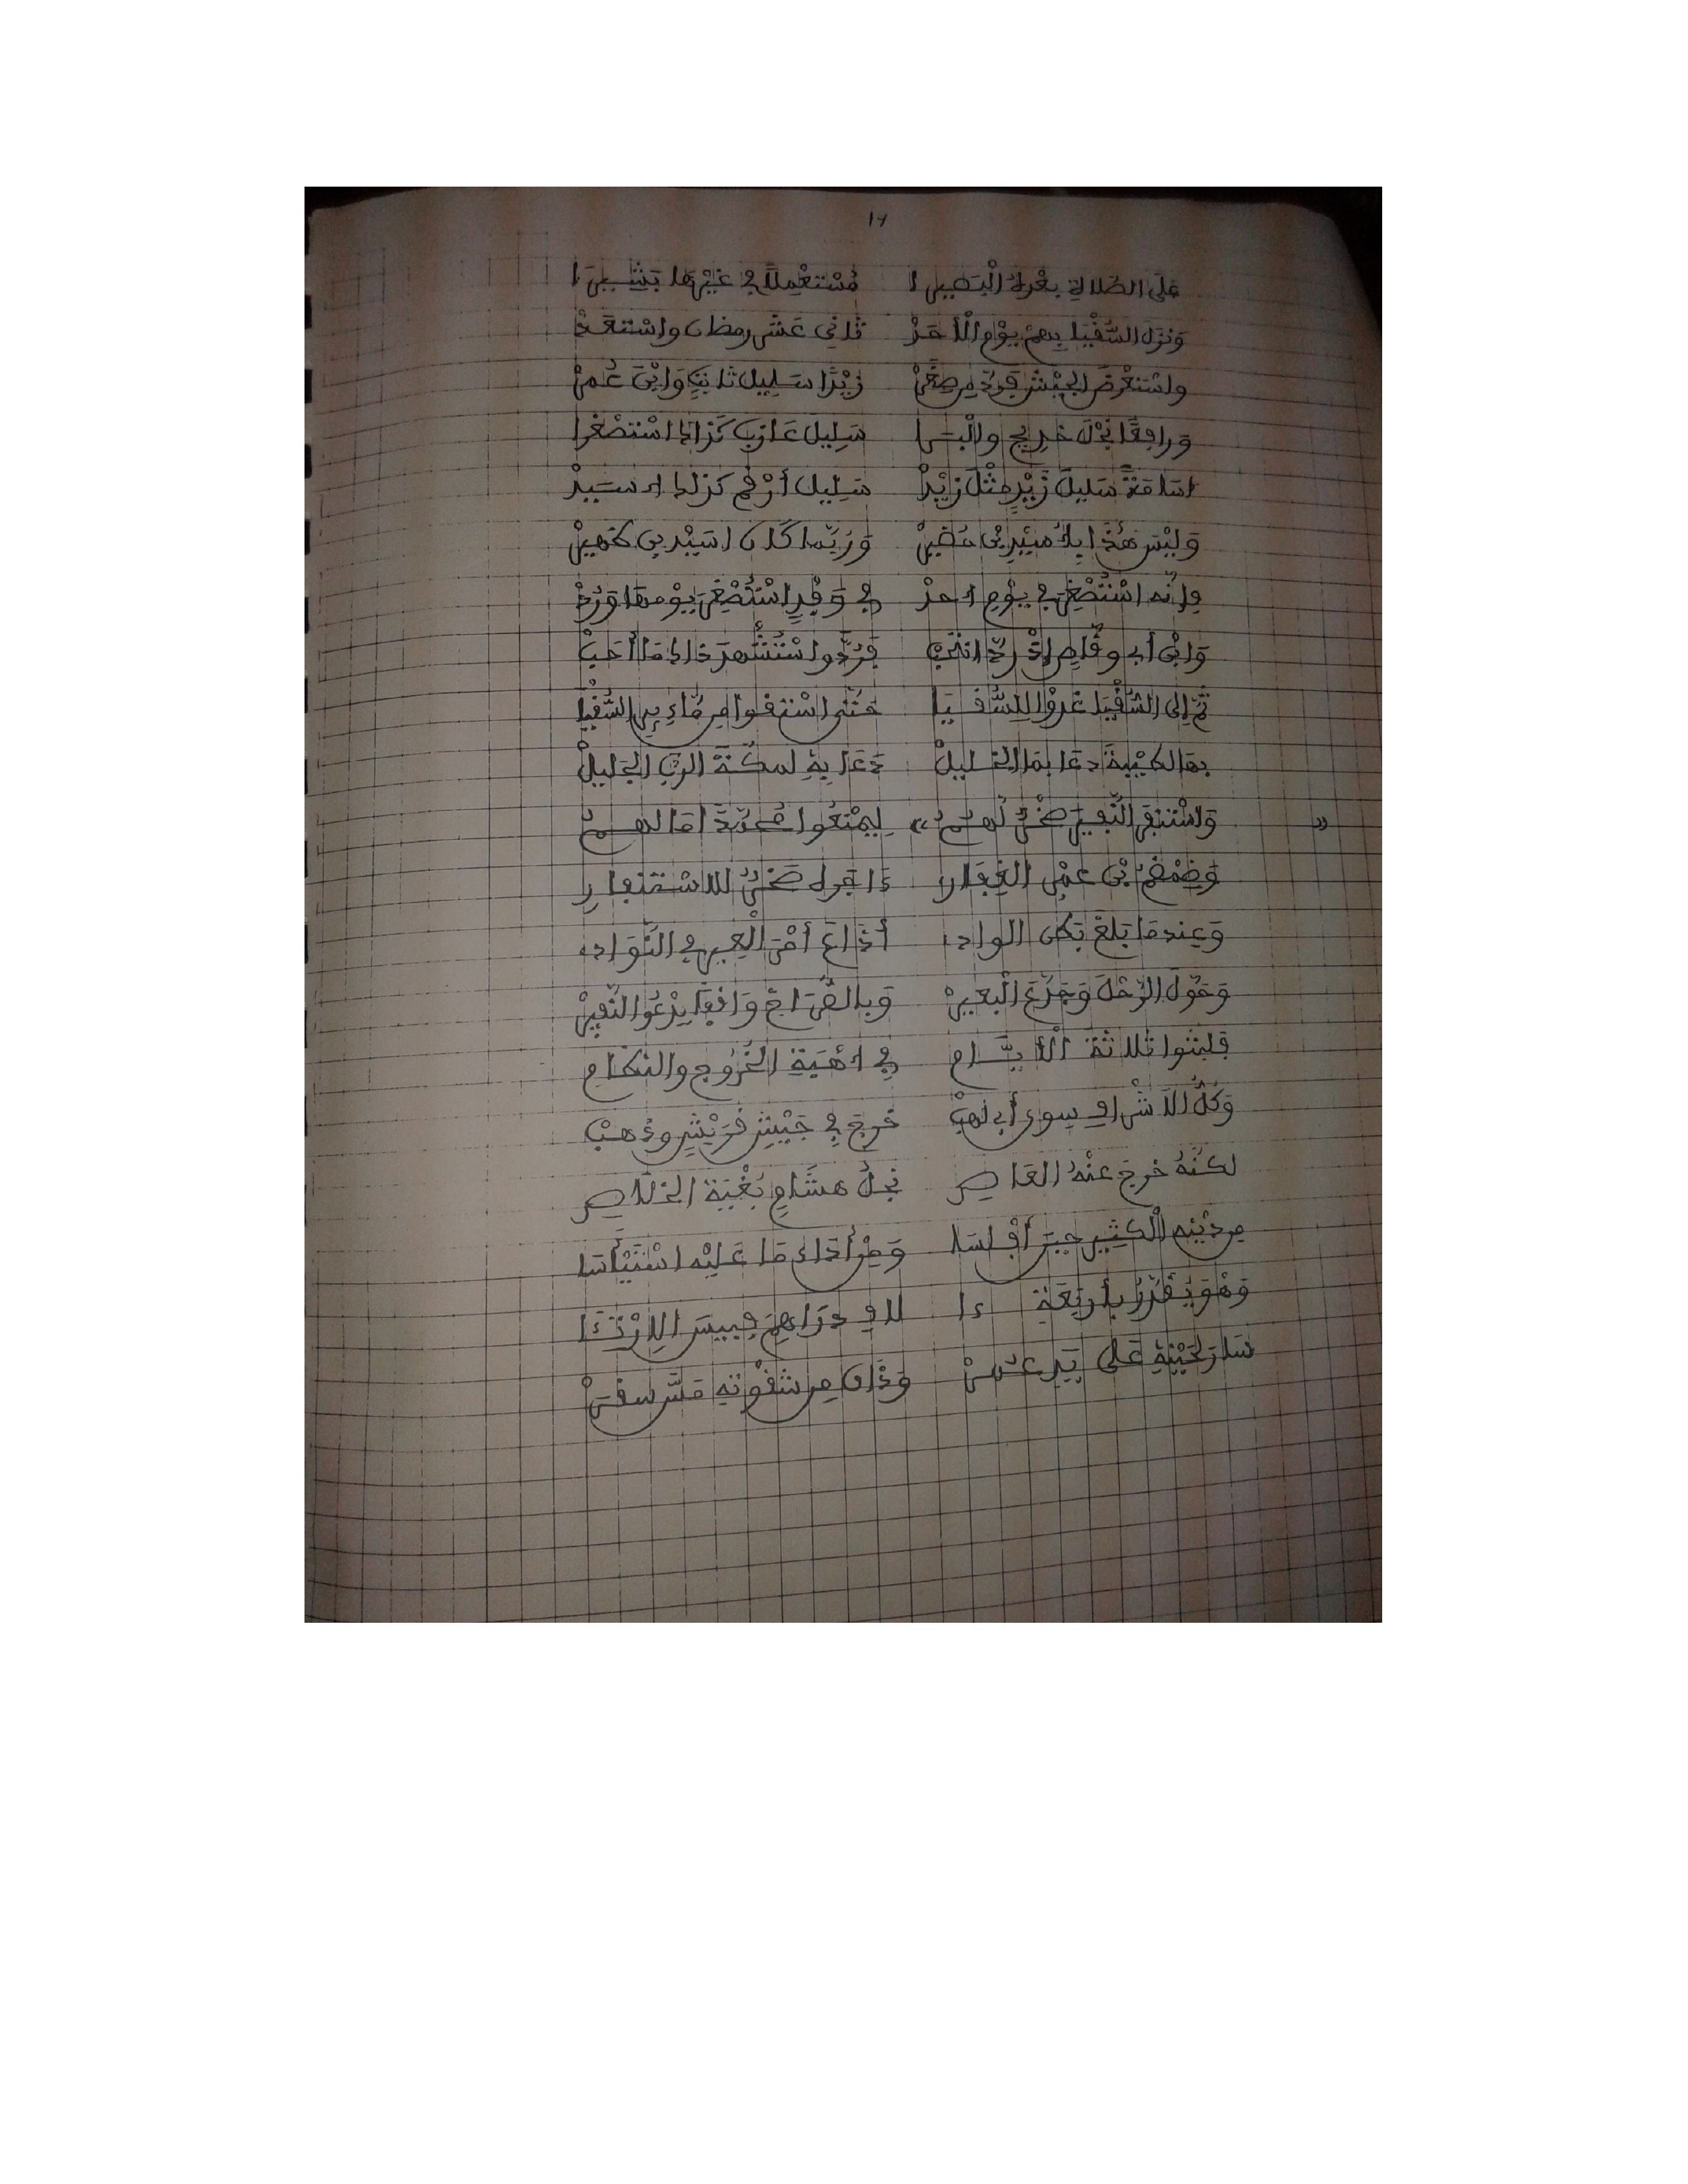 14
عَلَى الصَّلَاةِ بَعْدَهُ الْبَصِيرَا مُسْتَعْمِلًا فِي غَيْرِهَا بَشِيرَا
وَنَزَلَ السُّقْيَا بِهِمْ يَوْمَ الْأَحَدْ ثَانِي عَشَر رمضان وَاسْتَعَدْ
واسْتَعْرَضَ الْجَيْشَ فَرَدَّ مِن صِغَرْ زَيْدًا سَلِيلَ ثَابِتٍ وَابْنَ عُمَرْ
وَرافِعًا نَجْلَ خَدِيجٍ وَالْبَرَا سَلِيلَ عَازِبٍ كَذَاكَ اسْتَصْغَرا
اسَامَةً سَلِيلَ زَيْدٍ مِثْلَ زَيْدْ سَلِيلِ أَرْقَمٍ كَذَلِكَ اسَيْدْ
وَلَيْسَ هَذَا بِاُسَيْدِ بْنِ حُضَيْرْ وَرُبَّمَا كَانَ اسَيْدَ بن ظُهَيْرْ
فإِنَّه اسْتُصْغِرَ فِي يَوْمِ احدْ
وَابْنُ أَبِي وقَّاصٍ إِذْ رُدَّ انْتَحَبْ فَرُدَّ واسْتُشْهِدَ ذاكَ مَا أَحَبْ
ثُمَّ إِلَى السُّقْيَا غَدَوْا لِلسُّقْيَا حَتَّى اسْتَقَوْا مِن مَّاءِ بِير السُّقْيَا
بهَا لطَيْبَةَ دعَا بمَا الخليلْ دَعَا بِهِ لمكَّةَ الرَّبَّ الجَلِيلْ
وَاسْتَنْفَرَ النَّفِيرَ ضَمْضَمٌ لَهُمْ لِيَمْنَعُوا مُحَمَّدًا مَا لَهُمْ
وَضَمْضَمُ بْنُ عَمْرٍ الغِفَارِ ءاجَرَهُ صَخْرٌ للاسْتنفارِ
وَعِندمَا بَلَغَ بَطْنَ الوادِ أَذَاعَ أَمْرَ الْعِيرِ فِي النَّوَادِ
وَحَوَّلَ الرَّحْلَ وَجَدَّعَ الْبعيرْ وَبِالصُّرَاخِ وَاقِفًا يَدْعُو النَّفِيرْ
فلبثوا ثلاثةَ الْأَيَّامِ فِي اهْبَةِ الْخُرُوجِ والنِّظَامِ
وَكُلُّ الَاشْرافِ سِوى أَبِي لَهَبْ خرجَ فِي جَيْشِ قُرَيْشٍ وذهبْ
لكنَّهُ خرجَ عنْهُ العَاصِ نجلُ هشَامٍ بُغْيَةَ الخَلَاصِ
مِن دَيْنِهِ الْكَثِيرِ حِينَ أَفْلَسَا وَمِنْ أَدَاءِ مَا عَلَيْهِ اسْتَيْأَسَا
وَهْوَ يُقَدَّرُ بأَرْبَعَةِ ءا لافِ دَرَاهِمَ
سَارَ لِحَيْنِهِ عَلَى يَدِ عُمَرْ وَذَاكَ مِن شِقْوَتِهِ مَسَّ سقَرْ